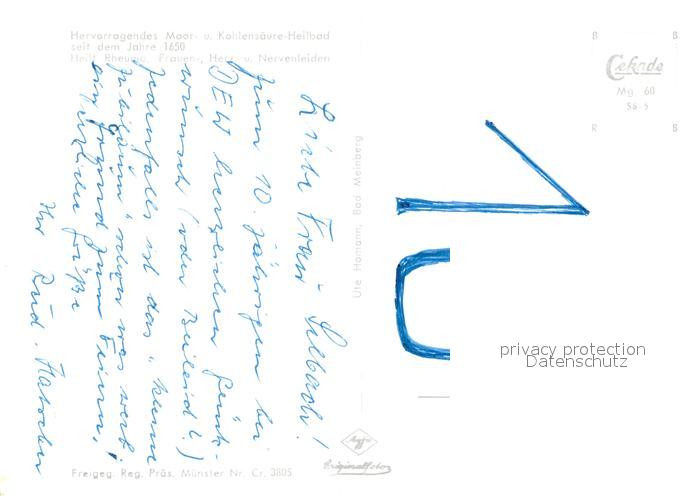 Hervorragendes Moor- u. Kohlensäure-Heilbad
seit dem Jahre 1650
Heilt Rheuma, Frauen-, Herz- u. Nervenleiden
Liebe Frau Selbach!
Zum 10. jährigen bei
DEW herzlichen Glück-
wunsch (oder Beileid?)
Jedenfalls ist das
Jubiläum schon was wert
ein Grund zum Feiern.
Herzliche Grüße
Ihr Rud.
Freigeg. Reg. Präs. Münster Nr. Cr. 3805
Ute Homann, Bad Meinberg
Agfa
Originalfoto
B B
Cekade
Mg 60
56-5
R B
privacy protection
Datenschutz